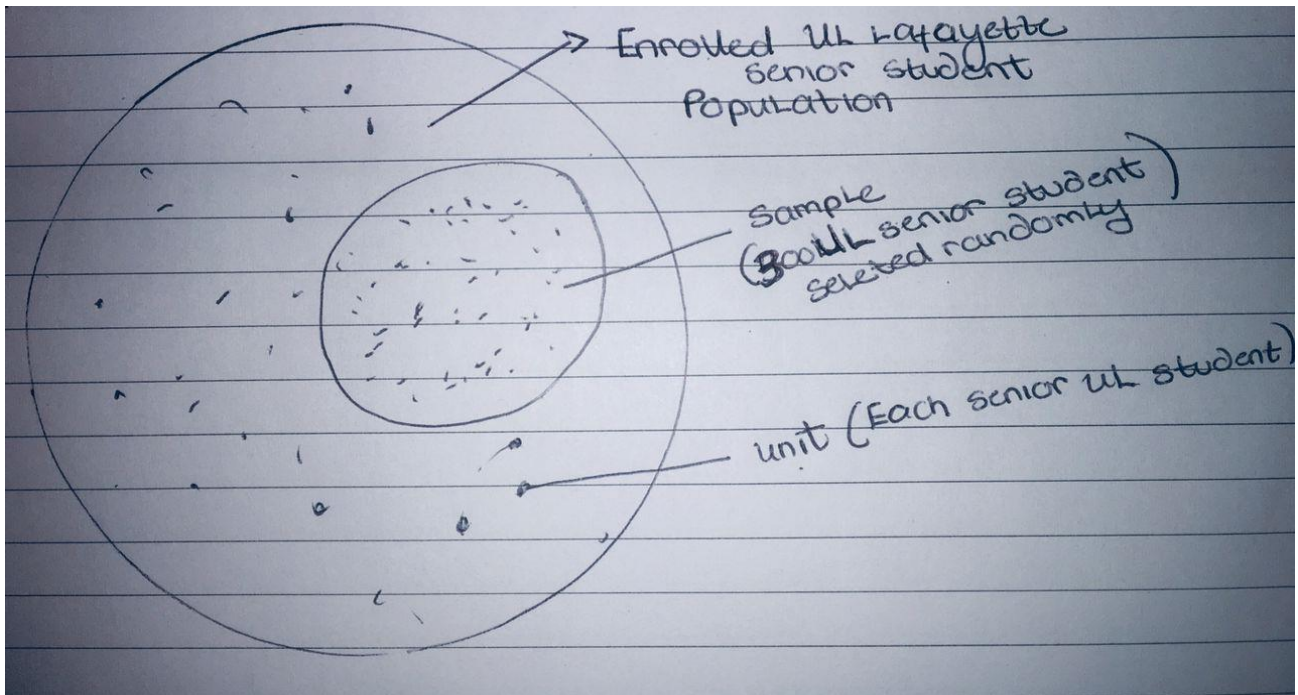 Enrolled UL Lafayette
senior student
Population
Sample
(300 UL senior student)
seleted randomly
unit (Each senior UL student)